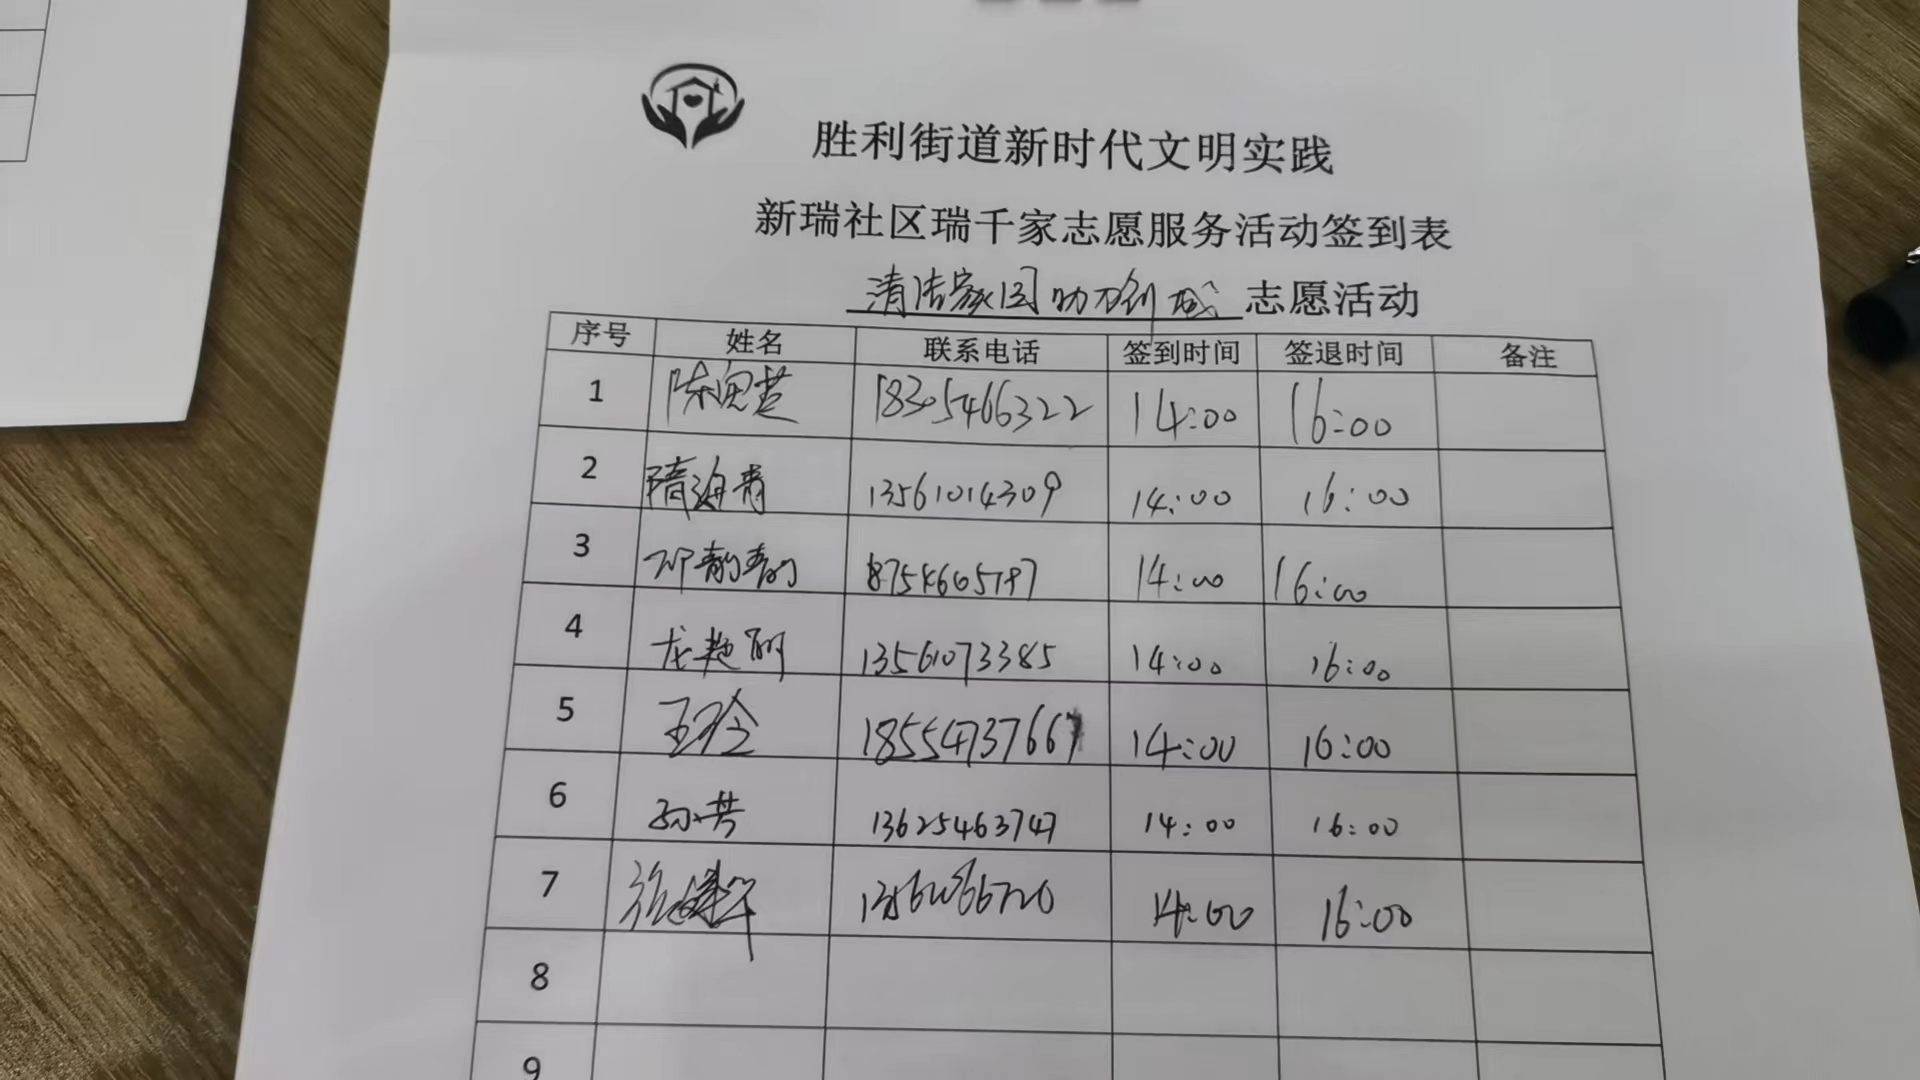 胜利街道新时代文明实践
新瑞社区瑞千家志愿服务活动签到表
清洁家园助力创城 志愿活动
序号 姓名 联系电话 签到时间 签退时间 备注
1 陈 18305466322 14:00 16:00
2 隋海青 13561014309 14:00 16:00
3 邓韵韵 14:00 16:00
4 龙艳丽 13561073385 14:00 16:00
5 王玲 18554737667 14:00 16:00
6 孙芳 13625463747 14:00 16:00
7 14:00 16:00
8
9